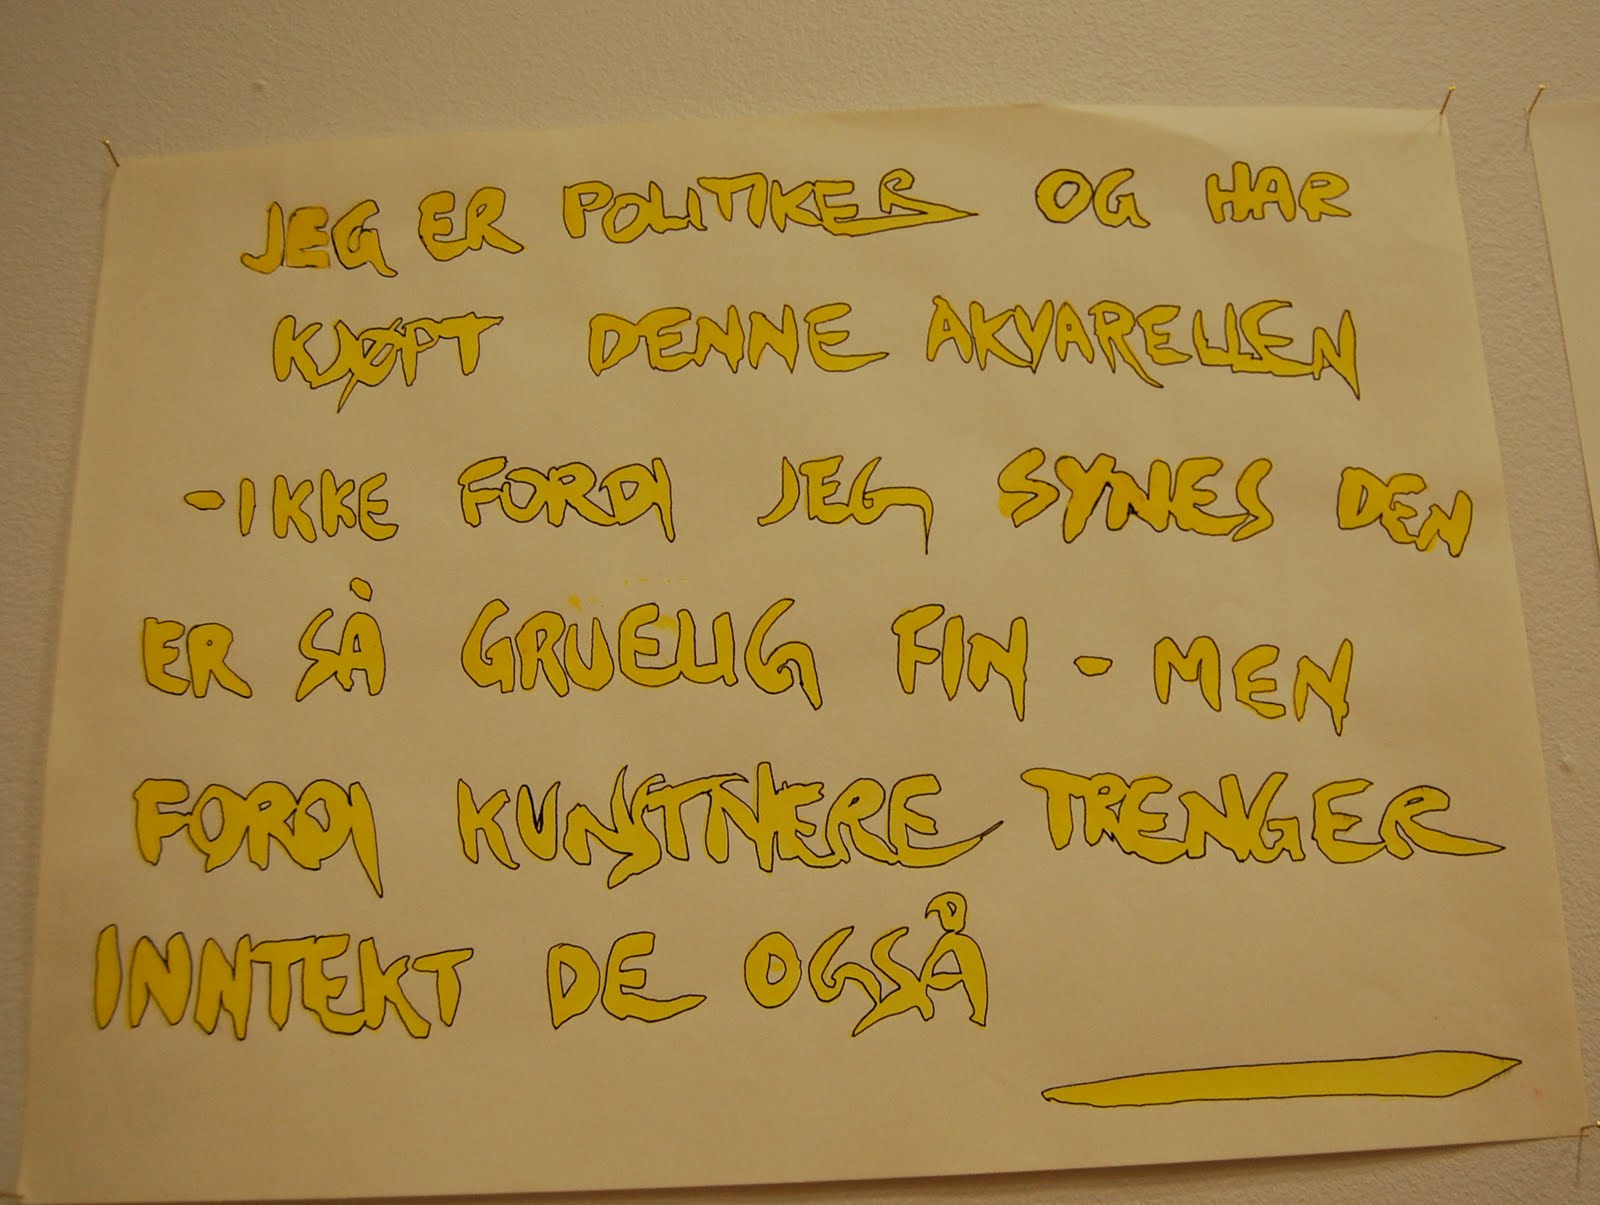 JEG ER POLITIKER OG HAR
KJØPT DENNE AKVARELLEN
-IKKE FORDI JEG SYNES DEN
ER SÅ GRUELIG FIN - MEN
FORDI KUNSTNERE TRENGER
INNTEKT DE OGSÅ